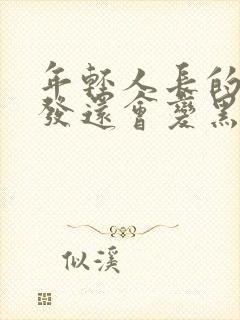 年輕人長的
發還會變黑
似溪